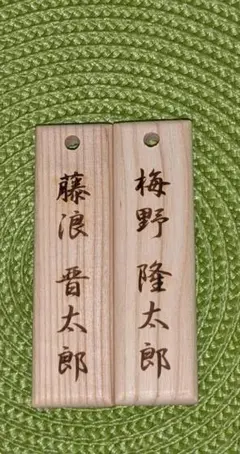 梅野 隆太郎
藤浪 晋太郎